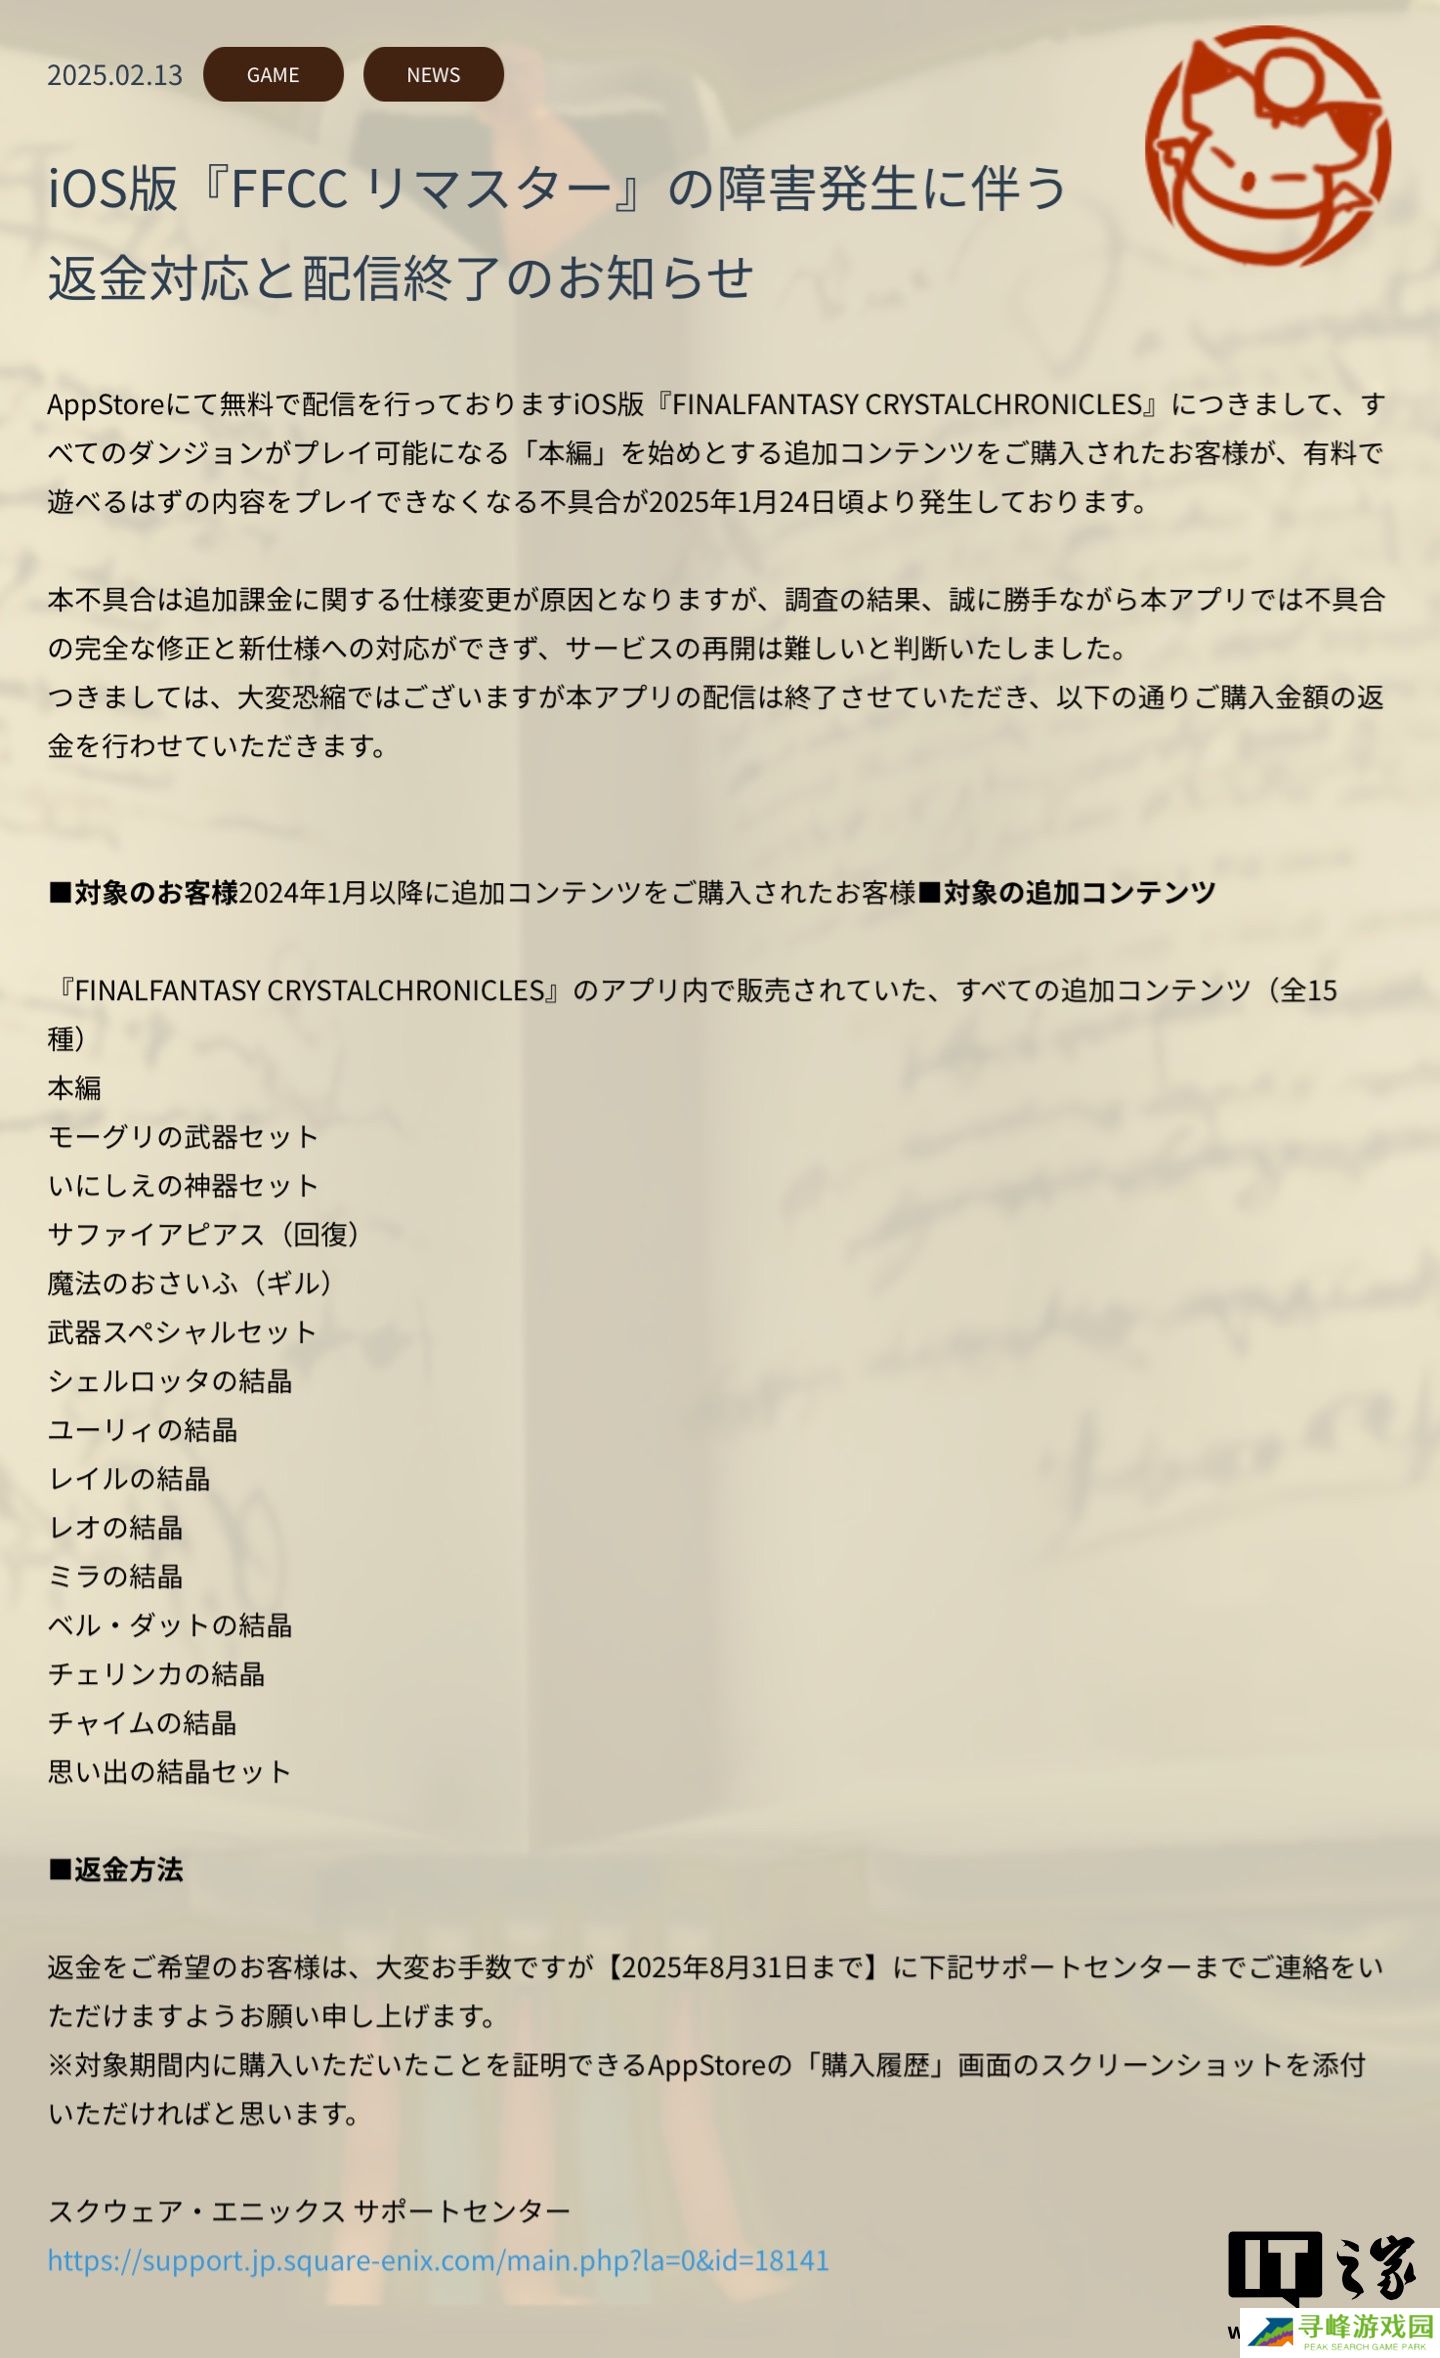 2025.02.13 GAME NEWS
iOS版『FFCC リマスター』の障害発生に伴う
返金対応と配信終了のお知らせ
AppStoreにて無料で配信を行っておりますiOS版『FINALFANTASY CRYSTALCHRONICLES』につきまして、す
べてのダンジョンがプレイ可能になる「本編」を始めとする追加コンテンツをご購入されたお客様が、有料で
遊べるはずの内容をプレイできなくなる不具合が2025年1月24日頃より発生しております。
本不具合は追加課金に関する仕様変更が原因となりますが、調査の結果、誠に勝手ながら本アプリでは不具合
の完全な修正と新仕様への対応ができず、サービスの再開は難しいと判断いたしました。
つきましては、大変恐縮ではございますが本アプリの配信は終了させていただき、以下の通りご購入金額の返
金を行わせていただきます。
■対象のお客様2024年1月以降に追加コンテンツをご購入されたお客様■対象の追加コンテンツ
『FINALFANTASY CRYSTALCHRONICLES』のアプリ内で販売されていた、すべての追加コンテンツ（全15
種）
本編
モーグリの武器セット
いにしえの神器セット
サファイアピアス（回復）
魔法のおさいふ（ギル）
武器スペシャルセット
シェルロッタの結晶
ユーリィの結晶
レイルの結晶
レオの結晶
ミラの結晶
ベル・ダットの結晶
チェリンカの結晶
チャイムの結晶
思い出の結晶セット
■返金方法
返金をご希望のお客様は、大変お手数ですが【2025年8月31日まで】に下記サポートセンターまでご連絡をい
ただけますようお願い申し上げます。
※対象期間内に購入いただいたことを証明できるAppStoreの「購入履歴」画面のスクリーンショットを添付
いただければと思います。
スクウェア・エニックス サポートセンター
https://support.jp.square-enix.com/main.php?la=0&id=18141
IT之家
寻峰游戏园
PEAK SEARCH GAME PARK